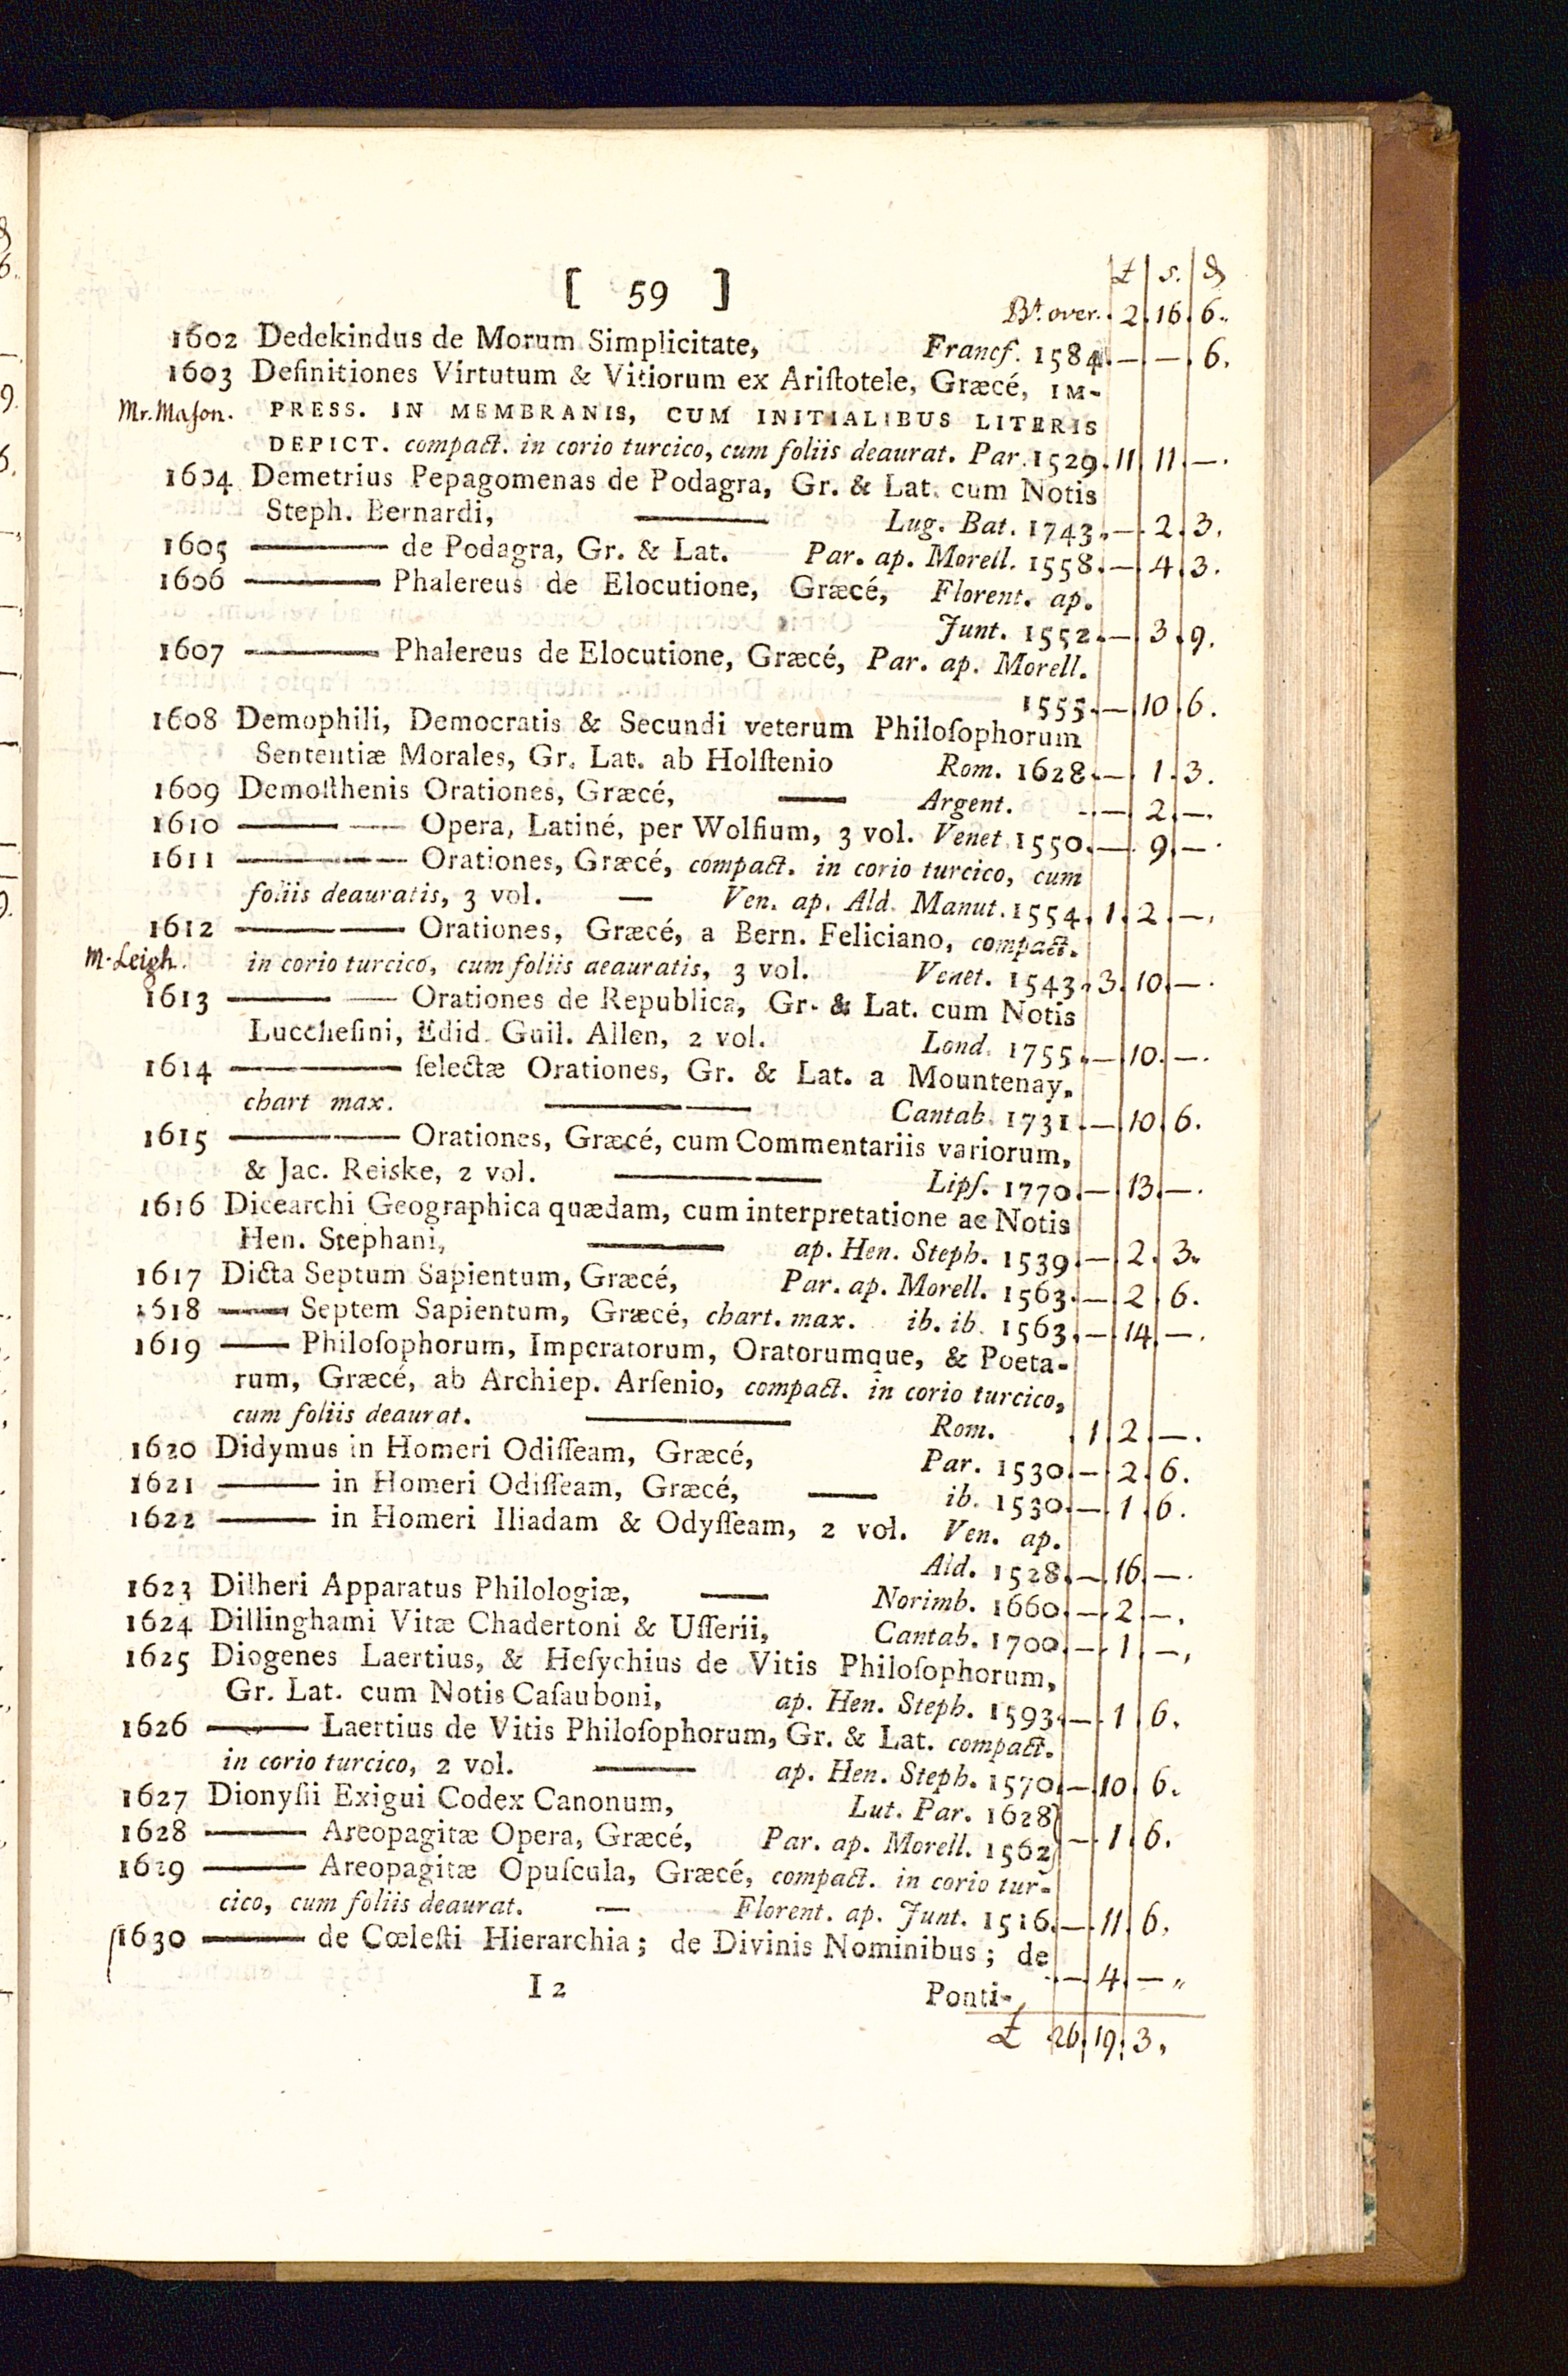 £ s. d
[ 59 ]
Bt. over. 2. 16. 6.
1602 Dedekindus de Morum Simplicitate, Francſ. 1584. — — 6.
1603 Definitiones Virtutum & Vitiorum ex Ariſtotele, Græcé, IM-
Mr. Maſon. PRESS. IN MEMBRANIS, CUM INITIALIBUS LITERIS
DEPICT. compact. in corio turcico, cum foliis deaurat. Par. 1529. 11. 11. —.
1604 Demetrius Pepagomenas de Podagra, Gr. & Lat. cum Notis
Steph. Bernardi, —— Lug. Bat. 1743. — 2. 3.
1605 —— de Podagra, Gr. & Lat. Par. ap. Morell. 1558. — 4. 3.
1606 —— Phalereus de Elocutione, Græcé, Florent. ap.
Junt. 1552. — 3. 9.
1607 —— Phalereus de Elocutione, Græcé, Par. ap. Morell.
1555. — 10. 6.
1608 Demophili, Democratis & Secundi veterum Philoſophorum
Sententiæ Morales, Gr. Lat. ab Holſtenio Rom. 1628. — 1. 3.
1609 Demoſthenis Orationes, Græcé, —— Argent. — 2. —.
1610 —— Opera, Latiné, per Wolfium, 3 vol. Venet 1550. — 9. —.
1611 —— Orationes, Græcé, compact. in corio turcico, cum
foliis deauratis, 3 vol. — Ven. ap. Ald. Manut. 1554. 1. 2. —.
1612 —— Orationes, Græcé, a Bern. Feliciano, compact.
M. Leigh. in corio turcico, cum foliis aeauratis, 3 vol. Venet. 1543. 3. 10. —.
1613 —— Orationes de Republica, Gr. & Lat. cum Notis
Lucchefini, Edid. Guil. Allen, 2 vol. Lond. 1755. — 10. —.
1614 —— ſelectæ Orationes, Gr. & Lat. a Mountenay,
chart max. —— Cantab. 1731. — 10. 6.
1615 —— Orationes, Græcé, cum Commentariis variorum,
& Jac. Reiske, 2 vol. —— Lipſ. 1770. — 13. —.
1616 Dicearchi Geographica quædam, cum interpretatione ac Notis
Hen. Stephani, —— ap. Hen. Steph. 1539. — 2. 3.
1617 Dicta Septum Sapientum, Græcé, Par. ap. Morell. 1563. — 2. 6.
1618 —— Septem Sapientum, Græcé, chart. max. ib. ib. 1563. — 14. —.
1619 —— Philoſophorum, Imperatorum, Oratorumque, & Poeta-
rum, Græcé, ab Archiep. Arſenio, compact. in corio turcico,
cum foliis deaurat. —— Rom. 1. 2. —.
1620 Didymus in Homeri Odiſſeam, Græcé, Par. 1530. — 2. 6.
1621 —— in Homeri Odiſſeam, Græcé, —— ib. 1530. — 1. 6.
1622 —— in Homeri Iliadam & Odyſſeam, 2 vol. Ven. ap.
Ald. 1528. — 16. —.
1623 Dilheri Apparatus Philologiæ, —— Norimb. 1660. — 2. —.
1624 Dillinghami Vitæ Chadertoni & Uſſerii, Cantab. 1700. — 1. —.
1625 Diogenes Laertius, & Heſychius de Vitis Philoſophorum,
Gr. Lat. cum Notis Caſauboni, ap. Hen. Steph. 1593. — 1. 6.
1626 —— Laertius de Vitis Philoſophorum, Gr. & Lat. compact.
in corio turcico, 2 vol. —— ap. Hen. Steph. 1570. — 10. 6.
1627 Dionyſii Exigui Codex Canonum, Lut. Par. 1628
1628 —— Areopagitæ Opera, Græcé, Par. ap. Morell. 1562 — 1. 6.
1629 —— Areopagitæ Opuſcula, Græcé, compact. in corio tur-
cico, cum foliis deaurat. — Florent. ap. Junt. 1516. — 11. 6.
1630 —— de Cœleſti Hierarchia; de Divinis Nominibus; de
— 4. —.
I 2 Ponti-
£ 26. 19. 3.